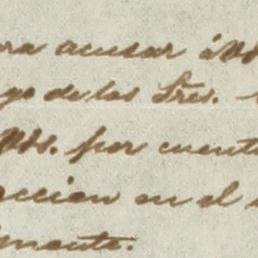 ra acusar á
go de los Sres.
por cuent
accion en el
mente.